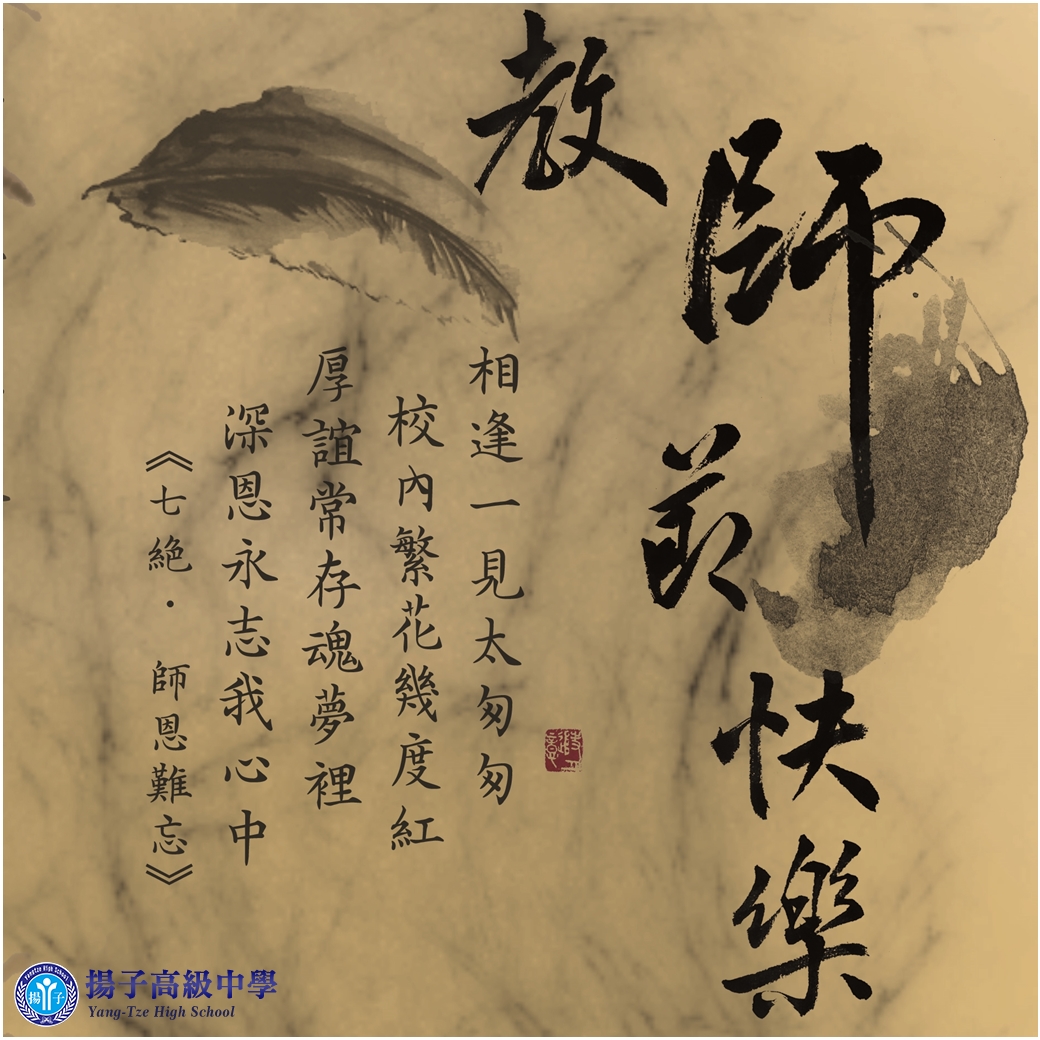 教師節快樂
相逢一見太匆匆
校內繁花幾度紅
厚誼常存魂夢裡
深恩永志我心中
《七絕·師恩難忘》
揚子高級中學
Yang-Tze High School
YangTze High School
揚子